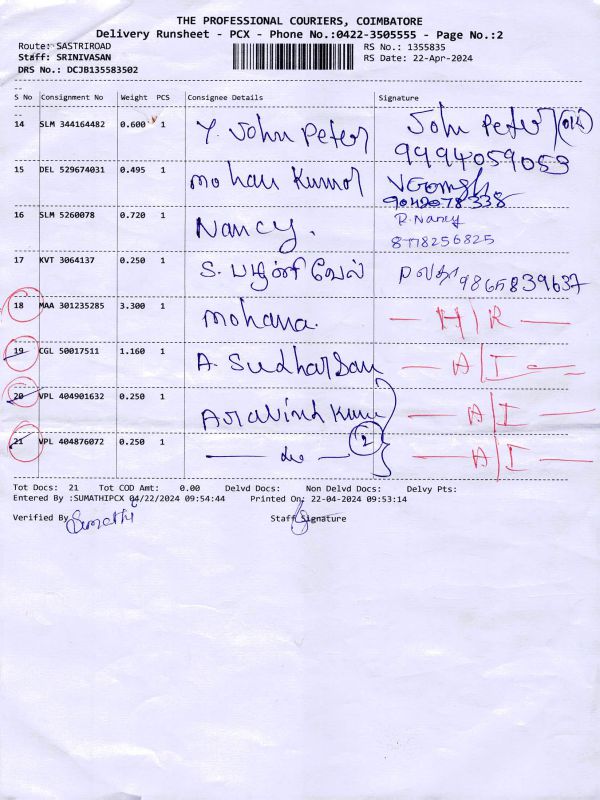 THE PROFESSIONAL COURIERS, COIMBATORE
Delivery Runsheet - PCX - Phone No.:0422-3505555 - Page No.:2
Route: SASTRIROAD RS No.: 1355835
Staff: SRINIVASAN RS Date: 22-Apr-2024
DRS No.: DCJB135583502
S No Consignment No Weight PCS Consignee Details Signature
14 SLM 344164482 0.600 1 Y. John Peter John Peter
9994059053
15 DEL 529674031 0.495 1 mohan Kumar
9042078338
16 SLM 5260078 0.720 1 Nancy. P. Nancy
8778256825
17 KVT 3064137 0.250 1 S. பழனிவேல் 9865839637
18 MAA 301235285 3.300 1 mohana. H/R
19 CGL 50017511 1.160 1 A. Sudharsan A/I
20 VPL 404901632 0.250 1 Aravind Kumar A/I
21 VPL 404876072 0.250 1 — do — 2 A/I
Tot Docs: 21 Tot COD Amt: 0.00 Delvd Docs: Non Delvd Docs: Delvy Pts:
Entered By :SUMATHIPCX 04/22/2024 09:54:44 Printed On: 22-04-2024 09:53:14
Verified By Sumathi Staff Signature